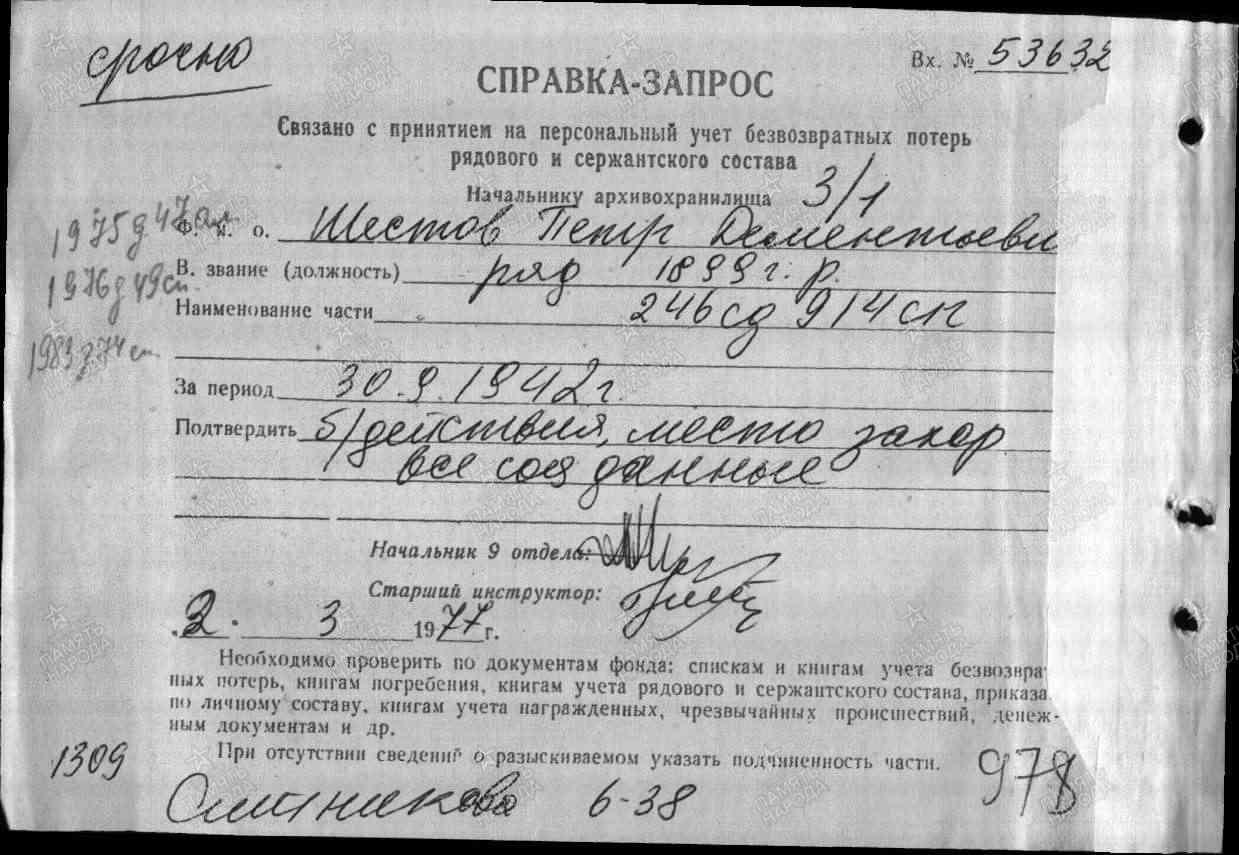 срочно
Вх. № 53632
СПРАВКА-ЗАПРОС
Связано с принятием на персональный учет безвозвратных потерь
рядового и сержантского состава
Начальнику архивохранилища 3/1
Ф. и. о. Шестов Петр Дементьеви
В. звание (должность) ряд 1899 г. р.
Наименование части 246 сд 914 сп
За период 30.9.1942 г.
Подтвердить б/действия, место захор
все соц данные
Начальник 9 отдела:
Старший инструктор:
2. 3 1977 г.
Необходимо проверить по документам фонда: спискам и книгам учета безвозвра
ных потерь, книгам погребения, книгам учета рядового и сержантского состава, приказа
по личному составу, книгам учета награжденных, чрезвычайных происшествий, денеж-
ным документам и др.
При отсутствии сведений о разыскиваемом указать подчиненность части.
1309
978
6-38
1975 д 47
1976 д 49
1983 д 74
ПАМЯТЬ НАРОДА